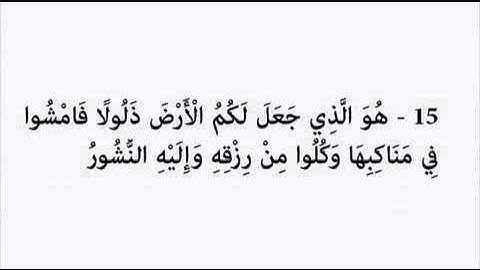 15 - هُوَ الَّذِي جَعَلَ لَكُمُ الْأَرْضَ ذَلُولًا فَامْشُوا
فِي مَنَاكِبِهَا وَكُلُوا مِنْ رِزْقِهِ وَإِلَيْهِ النُّشُورُ